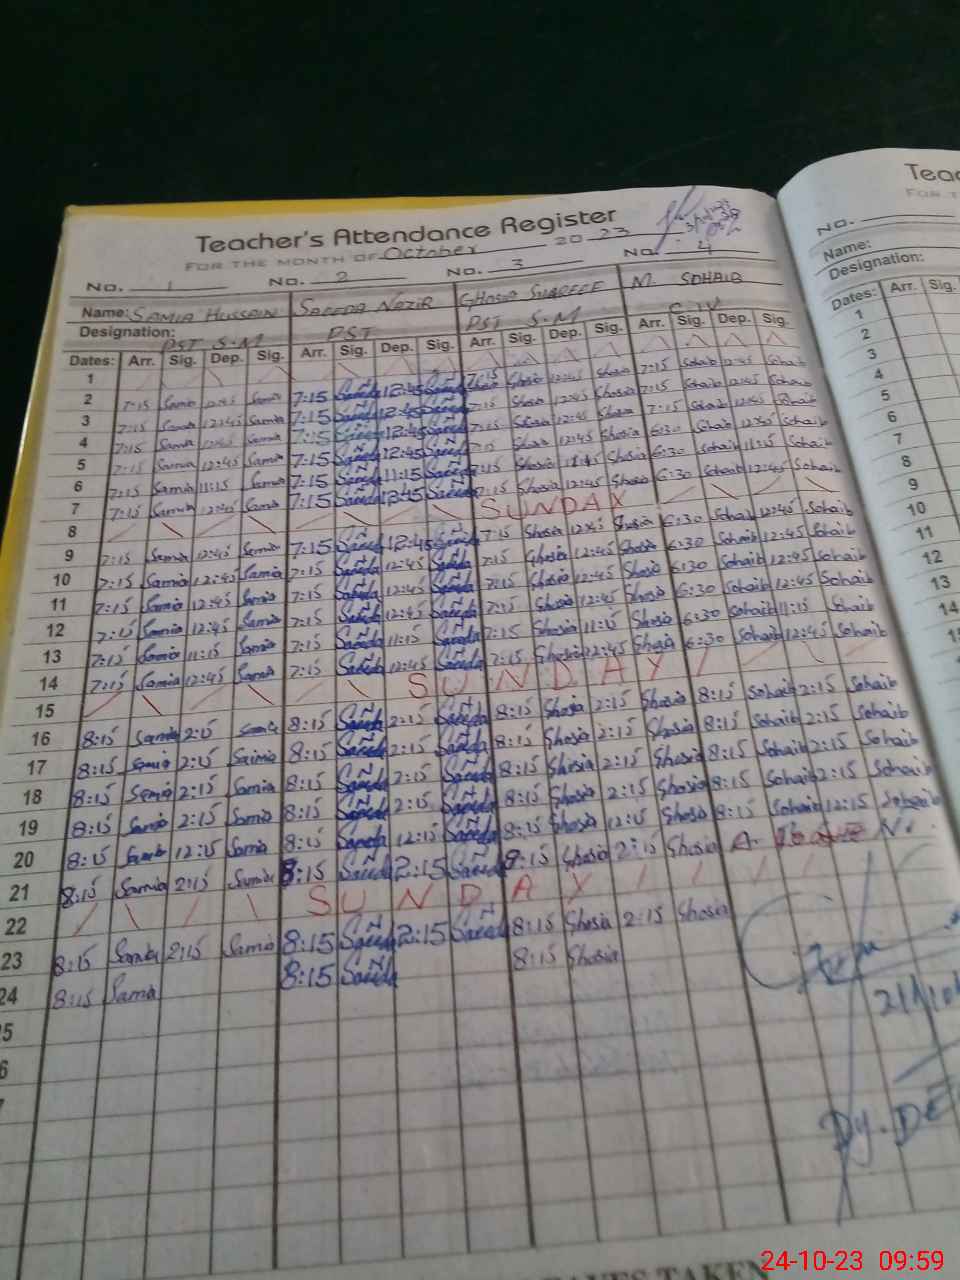 Teacher's Attendance Register
FOR THE MONTH OF October 2023
No. 1 No. 2 No. 3 No. 4
Name: SAMIA HUSSAIN SAEEDA NAZIR GHOSIA M. SOHAIB
Designation: PST S-M PST PST S-M C-IV
Dates: Arr. Sig. Dep. Sig. Arr. Sig. Dep. Sig. Arr. Sig. Dep. Sig. Arr. Sig. Dep. Sig.
1
2 7:15 Samia 12:45 Samia 7:15 Saeeda 12:45 Saeeda 7:15 Ghosia 12:45 Ghosia 7:15 Sohaib 12:45 Sohaib
3 7:15 Samia 12:45 Samia 7:15 Saeeda 12:45 Saeeda 7:15 Ghosia 12:45 Ghosia 7:15 Sohaib 12:45 Sohaib
4 7:15 Samia 12:45 Samia 7:15 Saeeda 12:45 Saeeda 7:15 Ghosia 12:45 Ghosia 7:15 Sohaib 12:45 Sohaib
5 7:15 Samia 12:45 Samia 7:15 Saeeda 12:45 Saeeda 7:15 Ghosia 12:45 Ghosia 6:30 Sohaib 12:45 Sohaib
6 7:15 Samia 11:15 Samia 7:15 Saeeda 11:15 Saeeda 7:15 Ghosia 11:15 Ghosia 6:30 Sohaib 11:15 Sohaib
7 7:15 Samia 12:45 Samia 7:15 Saeeda 12:45 Saeeda 7:15 Ghosia 12:45 Ghosia 6:30 Sohaib 12:45 Sohaib
8 SUNDAY
9 7:15 Samia 12:45 Samia 7:15 Saeeda 12:45 Saeeda 7:15 Ghosia 12:45 Ghosia 6:30 Sohaib 12:45 Sohaib
10 7:15 Samia 12:45 Samia 7:15 Saeeda 12:45 Saeeda 7:15 Ghosia 12:45 Ghosia 6:30 Sohaib 12:45 Sohaib
11 7:15 Samia 12:45 Samia 7:15 Saeeda 12:45 Saeeda 7:15 Ghosia 12:45 Ghosia 6:30 Sohaib 12:45 Sohaib
12 7:15 Samia 12:45 Samia 7:15 Saeeda 12:45 Saeeda 7:15 Ghosia 12:45 Ghosia 6:30 Sohaib 12:45 Sohaib
13 7:15 Samia 11:15 Samia 7:15 Saeeda 11:15 Saeeda 7:15 Ghosia 11:15 Ghosia 6:30 Sohaib 11:15 Sohaib
14 7:15 Samia 12:45 Samia 7:15 Saeeda 12:45 Saeeda 7:15 Ghosia 12:45 Ghosia 6:30 Sohaib 12:45 Sohaib
15 SUNDAY
16 8:15 Samia 2:15 Samia 8:15 Saeeda 2:15 Saeeda 8:15 Ghosia 2:15 Ghosia 8:15 Sohaib 2:15 Sohaib
17 8:15 Samia 2:15 Samia 8:15 Saeeda 2:15 Saeeda 8:15 Ghosia 2:15 Ghosia 8:15 Sohaib 2:15 Sohaib
18 8:15 Samia 2:15 Samia 8:15 Saeeda 2:15 Saeeda 8:15 Ghosia 2:15 Ghosia 8:15 Sohaib 2:15 Sohaib
19 8:15 Samia 2:15 Samia 8:15 Saeeda 2:15 Saeeda 8:15 Ghosia 2:15 Ghosia 8:15 Sohaib 2:15 Sohaib
20 8:15 Samia 12:15 Samia 8:15 Saeeda 12:15 Saeeda 8:15 Ghosia 12:15 Ghosia 8:15 Sohaib 12:15 Sohaib
21 8:15 Samia 2:15 Samia 8:15 Saeeda 2:15 Saeeda 8:15 Ghosia 2:15 Ghosia A
22 SUNDAY
23 8:15 Samia 2:15 Samia 8:15 Saeeda 2:15 Saeeda 8:15 Ghosia 2:15 Ghosia
24 8:15 Samia 8:15 Saeeda 8:15 Ghosia
Dy. DE
No.
Name:
Designation:
Dates: Arr. Sig.
1
2
3
4
5
6
7
8
9
10
11
12
13
14
24-10-23 09:59